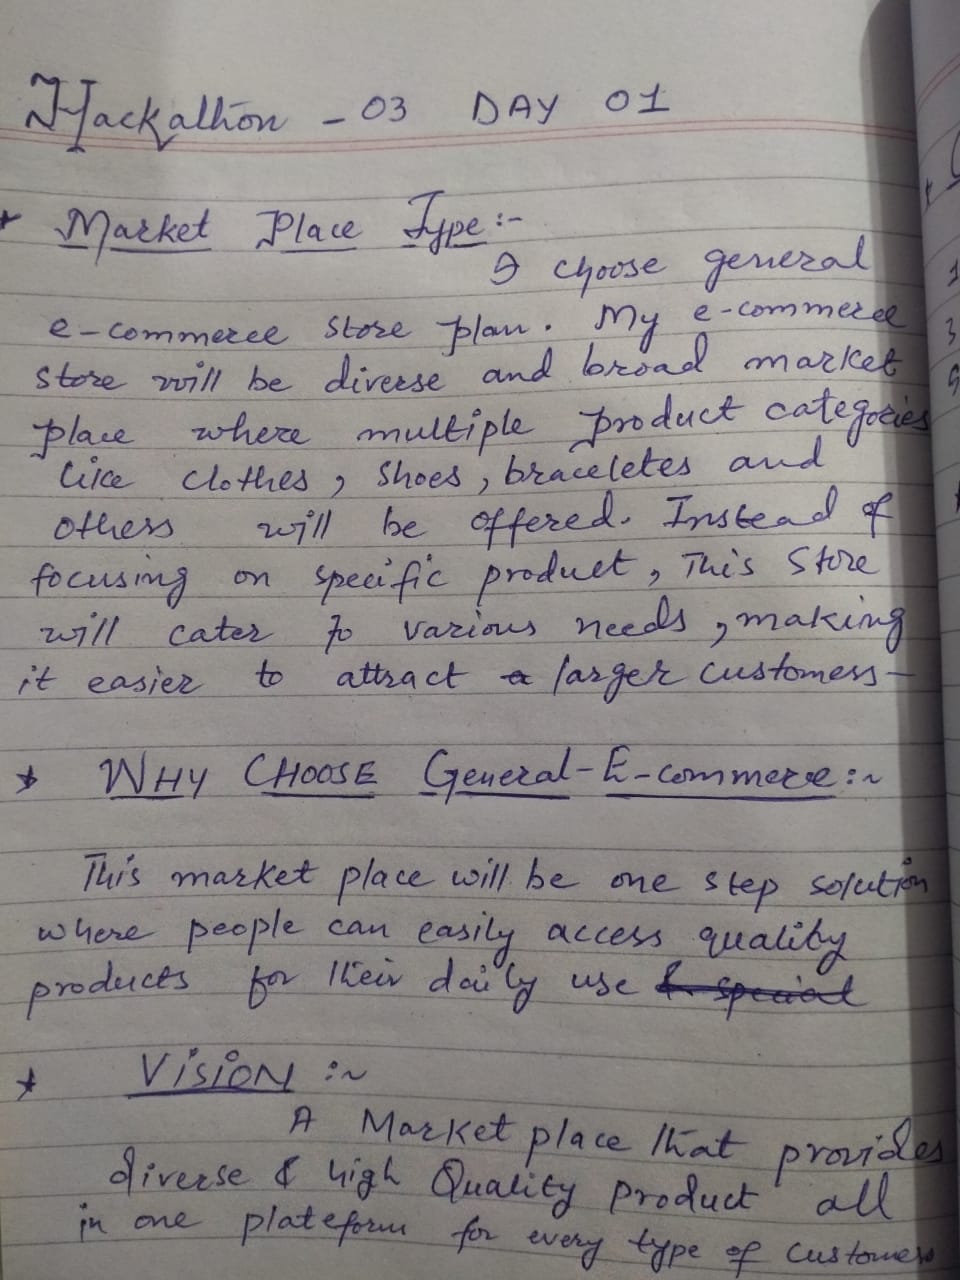 Hackathon - 03 DAY 01
* Market Place Type:-
I choose general
e-commerce store plan. My e-commerce
store will be diverse and broad market
place where multiple product categories
like clothes, shoes, braceletes and
others will be offered. Instead of
focusing on specific product, This store
will cater to various needs, making
it easier to attract a larger customers-
* WHY CHOOSE General-E-commerce:~
This market place will be one step solution
where people can easily access quality
products for their daily use & special
* VISION :~
A Market place that provides
diverse & high Quality product all
in one plateform for every type of customers